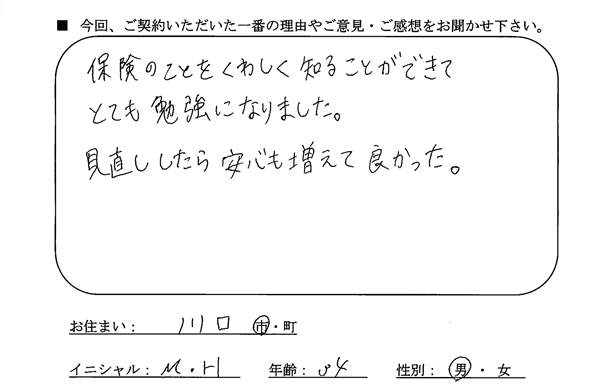 ■ 今回、ご契約いただいた一番の理由やご意見・ご感想をお聞かせ下さい。
保険のことをくわしく知ることができて
とても勉強になりました。
見直ししたら安心も増えて良かった。
お住まい： 川口 市・町
イニシャル： M.H 年齢： 34 性別： 男・女